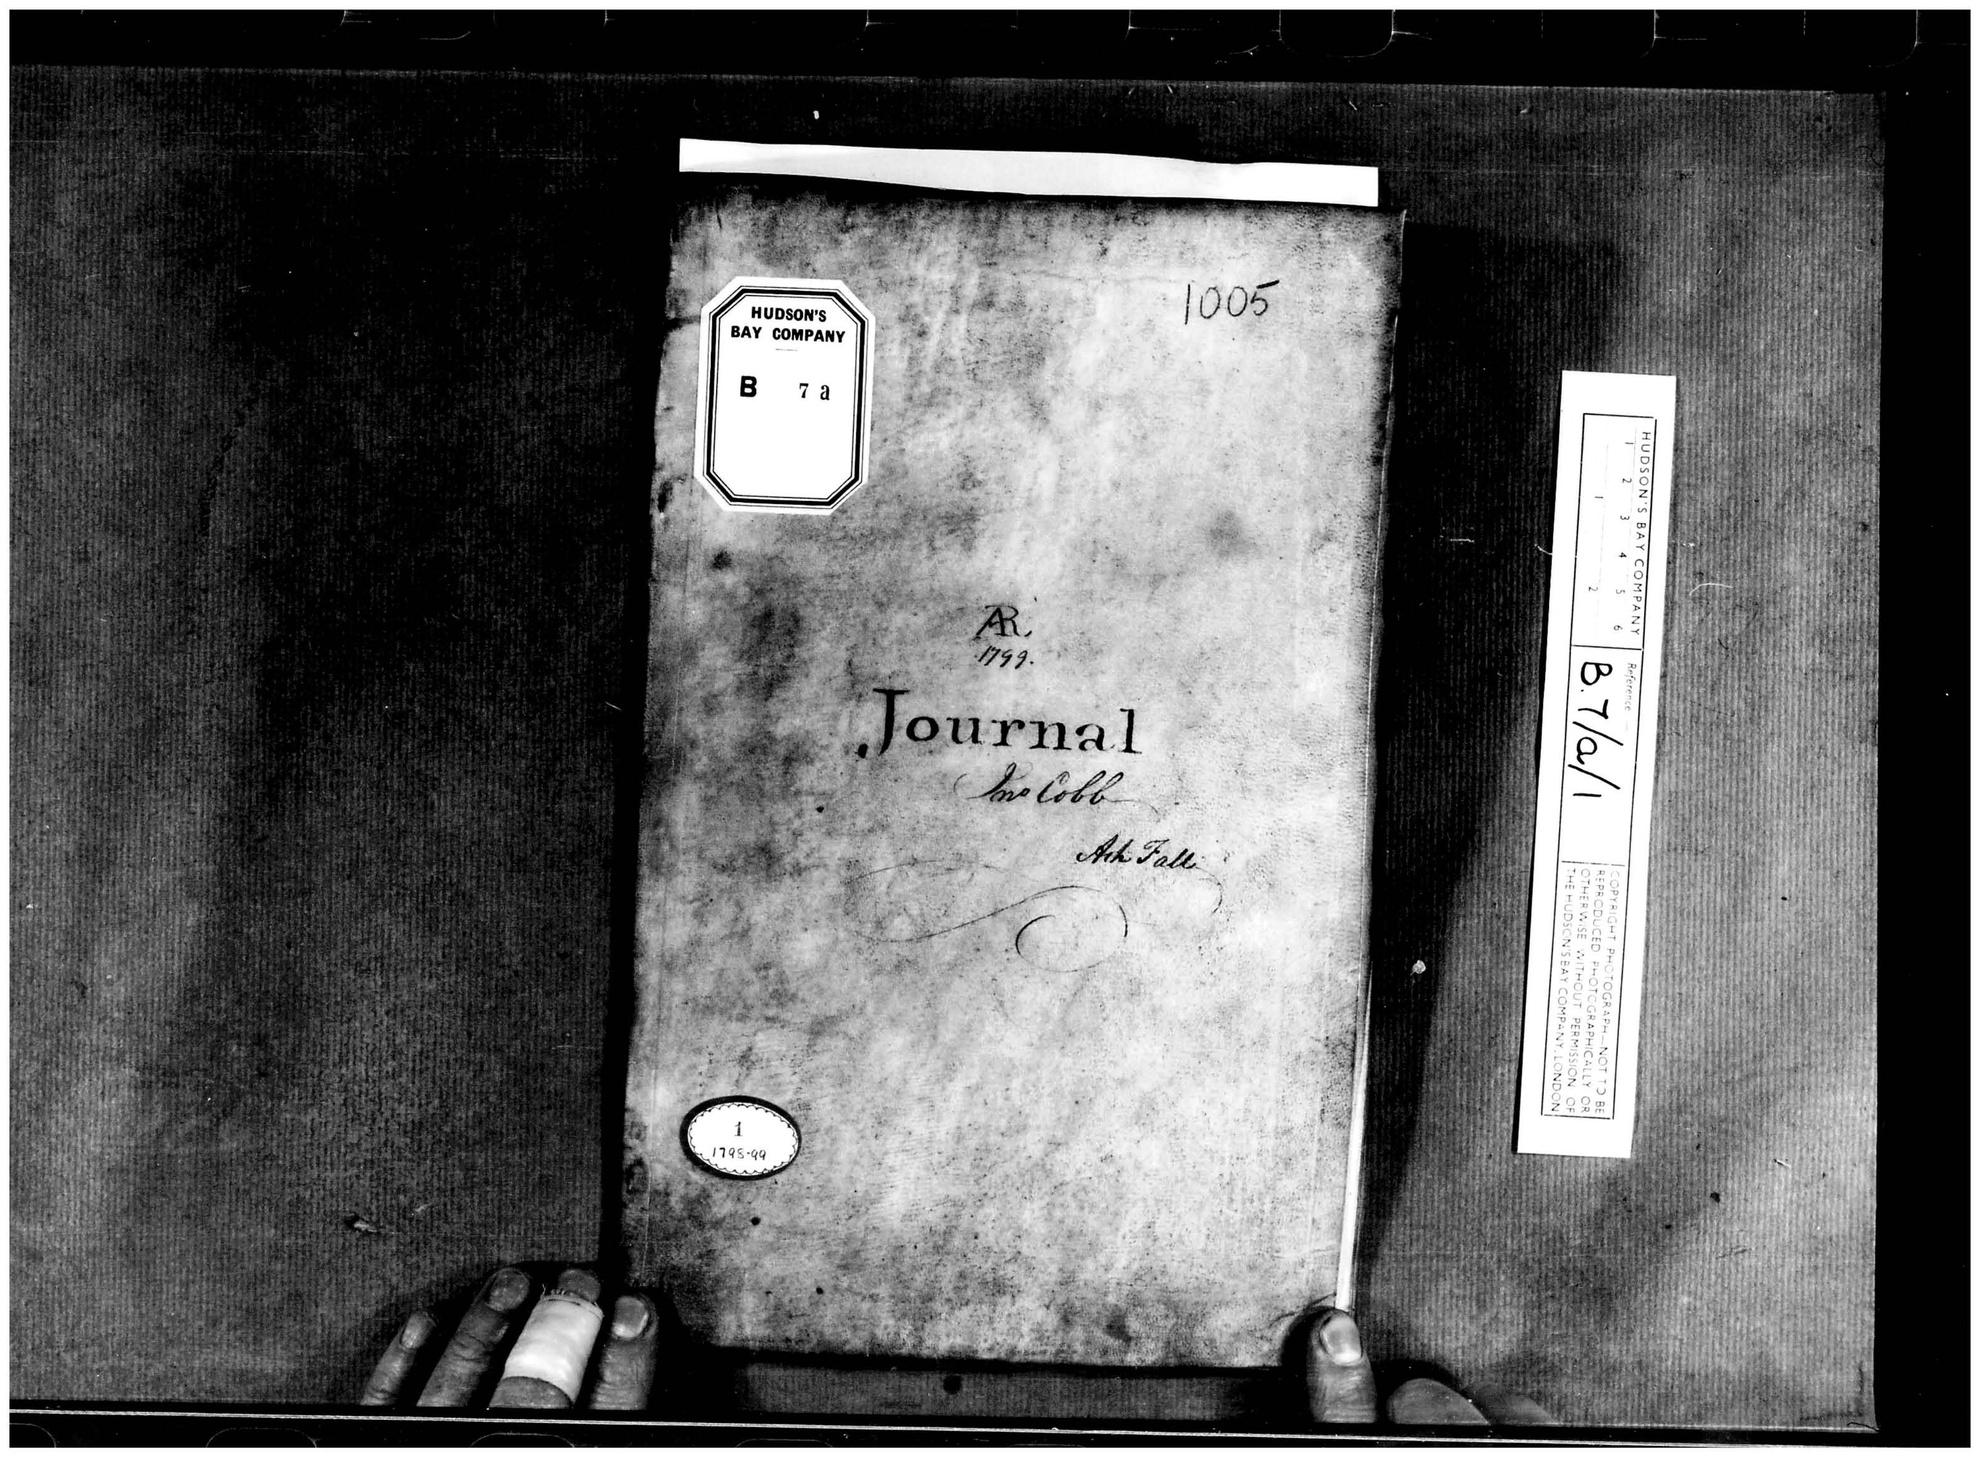 HUDSON'S
BAY COMPANY
B 7 a
1005
AR.
1799.
Journal
Jnº Cobb
Ash Fall
1
1798-99
HUDSON'S BAY COMPANY
1 2 3 4 5 6
1 2
Reference
B.7/a/1
COPYRIGHT PHOTOGRAPH—NOT TO BE
REPRODUCED PHOTOGRAPHICALLY OR
OTHERWISE WITHOUT PERMISSION OF
THE HUDSON'S BAY COMPANY, LONDON